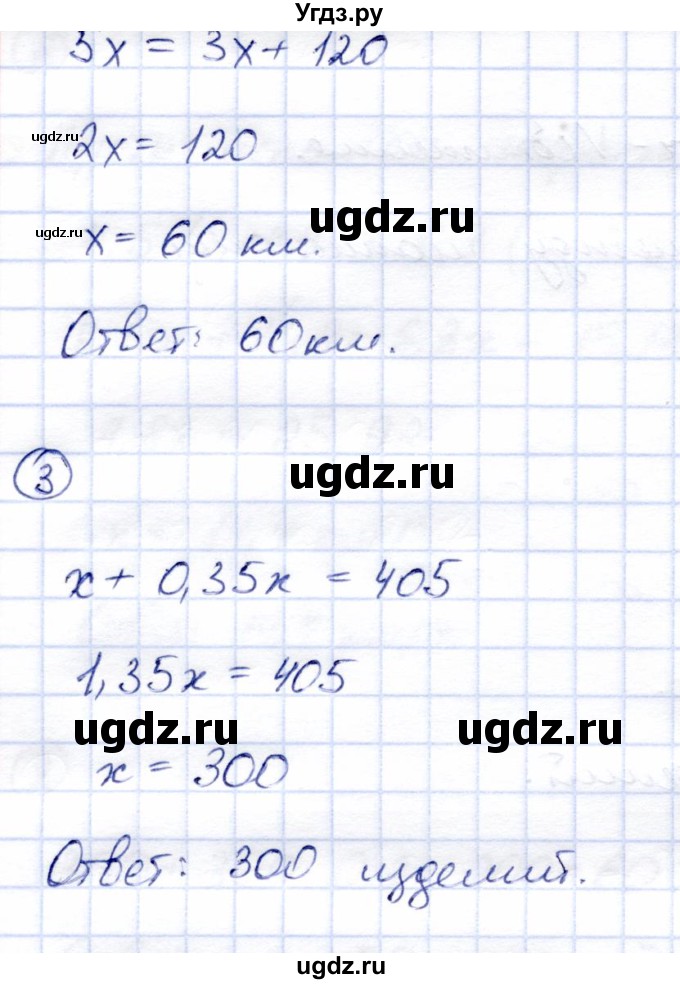 Угдз.ру
5x = 3x + 120
ugdz.ru
2x = 120
ugdz.ru
ugdz.ru
x = 60 км.
Ответ: 60 км.
ugdz.ru
3
x + 0,35x = 405
1,35x = 405
ugdz.ru ugdz.ru
x = 300
Ответ: 300 изделий.
ugdz.ru